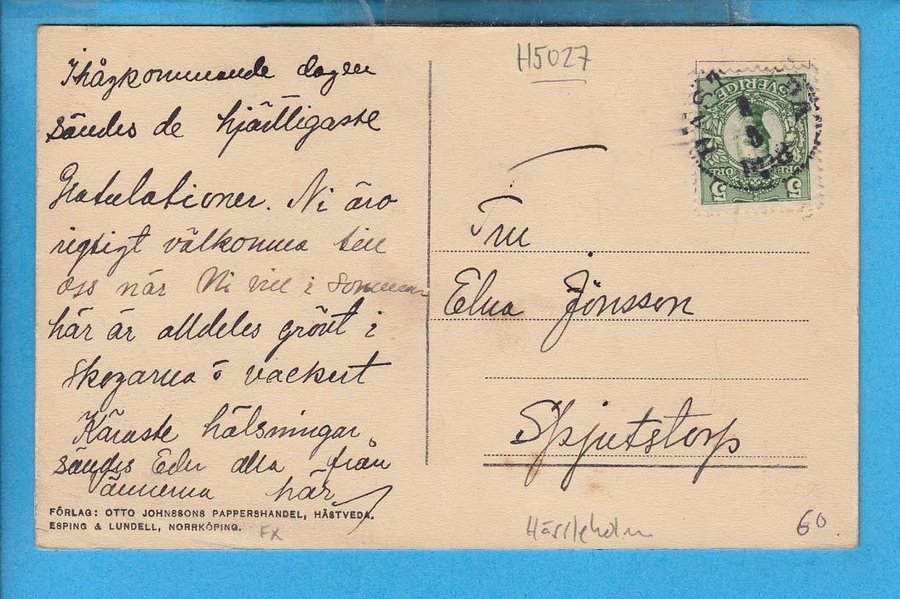 Ihågkommande dagen
sändes de hjärtligaste
Gratulationer. Ni äro
rigtigt välkomna till
oss när Ni vill i Sommar
här är alldeles grönt i
Skogarna o vackert
Käraste hälsningar
sändes Eder alla från
vännerna här
FÖRLAG: OTTO JOHNSSONS PAPPERSHANDEL, HÄSTVEDA.
ESPING & LUNDELL, NORRKÖPING.
FX
H5027
SVERIGE
5 5
Fru
Elna Jönsson
Spjutstorp
Hässleholm
60